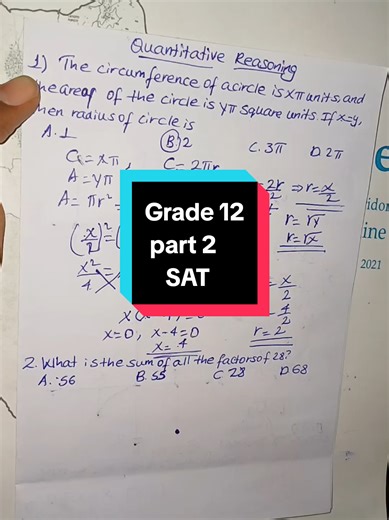 Quantitative Reasoning
1) The circumference of a circle is xπ units, and
the area of the circle is yπ square units. If x=y,
then radius of circle is
A. 1 B. 2 C. 3π D. 2π
C = xπ, C = 2πr
A = yπ = 2r ⇒ r = x/2
A = πr² = r = √y
(x/2)² = ( r = √x
x²/4 = x/2
x = 0, x-4=0 r = 2
x = 4
2. What is the sum of all the factors of 28?
A. 56 B. 55 C. 28 D. 68
Grade 12
part 2
SAT
ine
2021